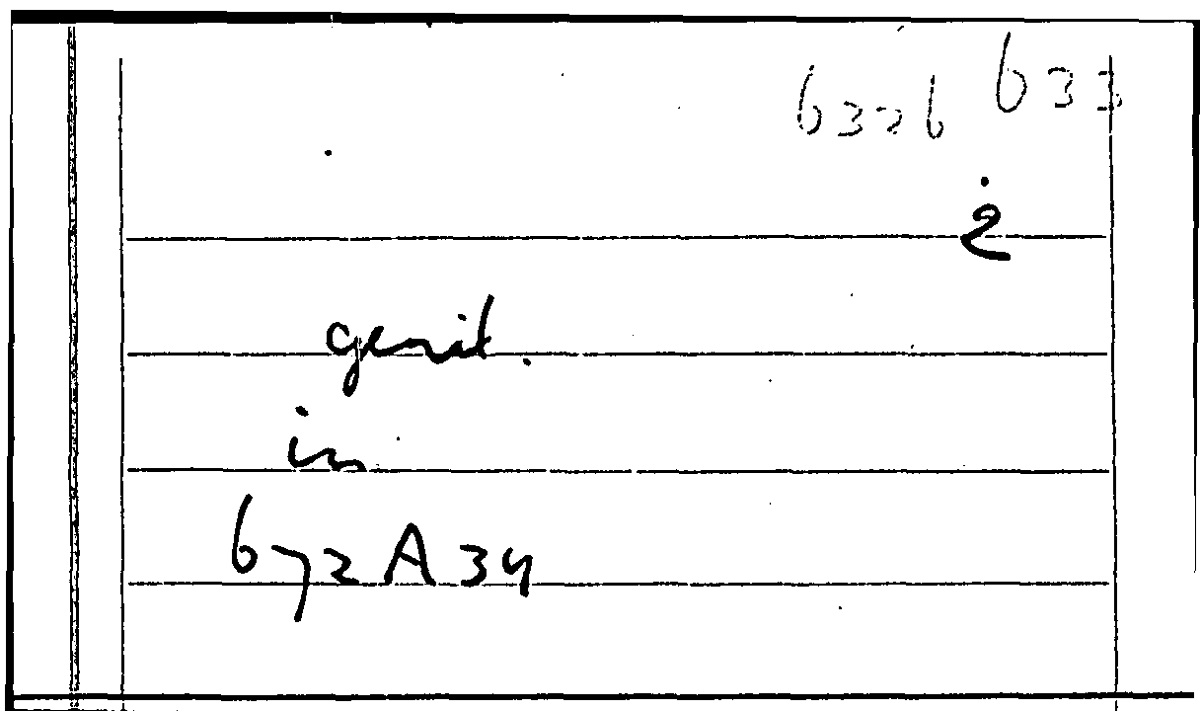 632b 633
2
genit.
in
672A34